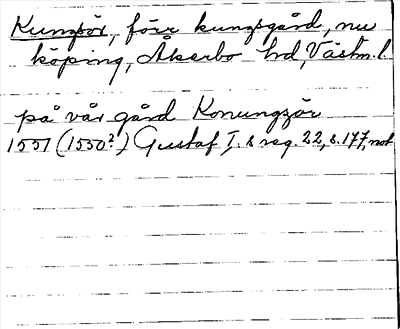 Kungsör, förr kungsgård, nu
köping, Åkerbo hd, Västm. l.
på vår gård Konungzör
1551 (1550?) Gustaf I.s reg. 22, s. 177, not